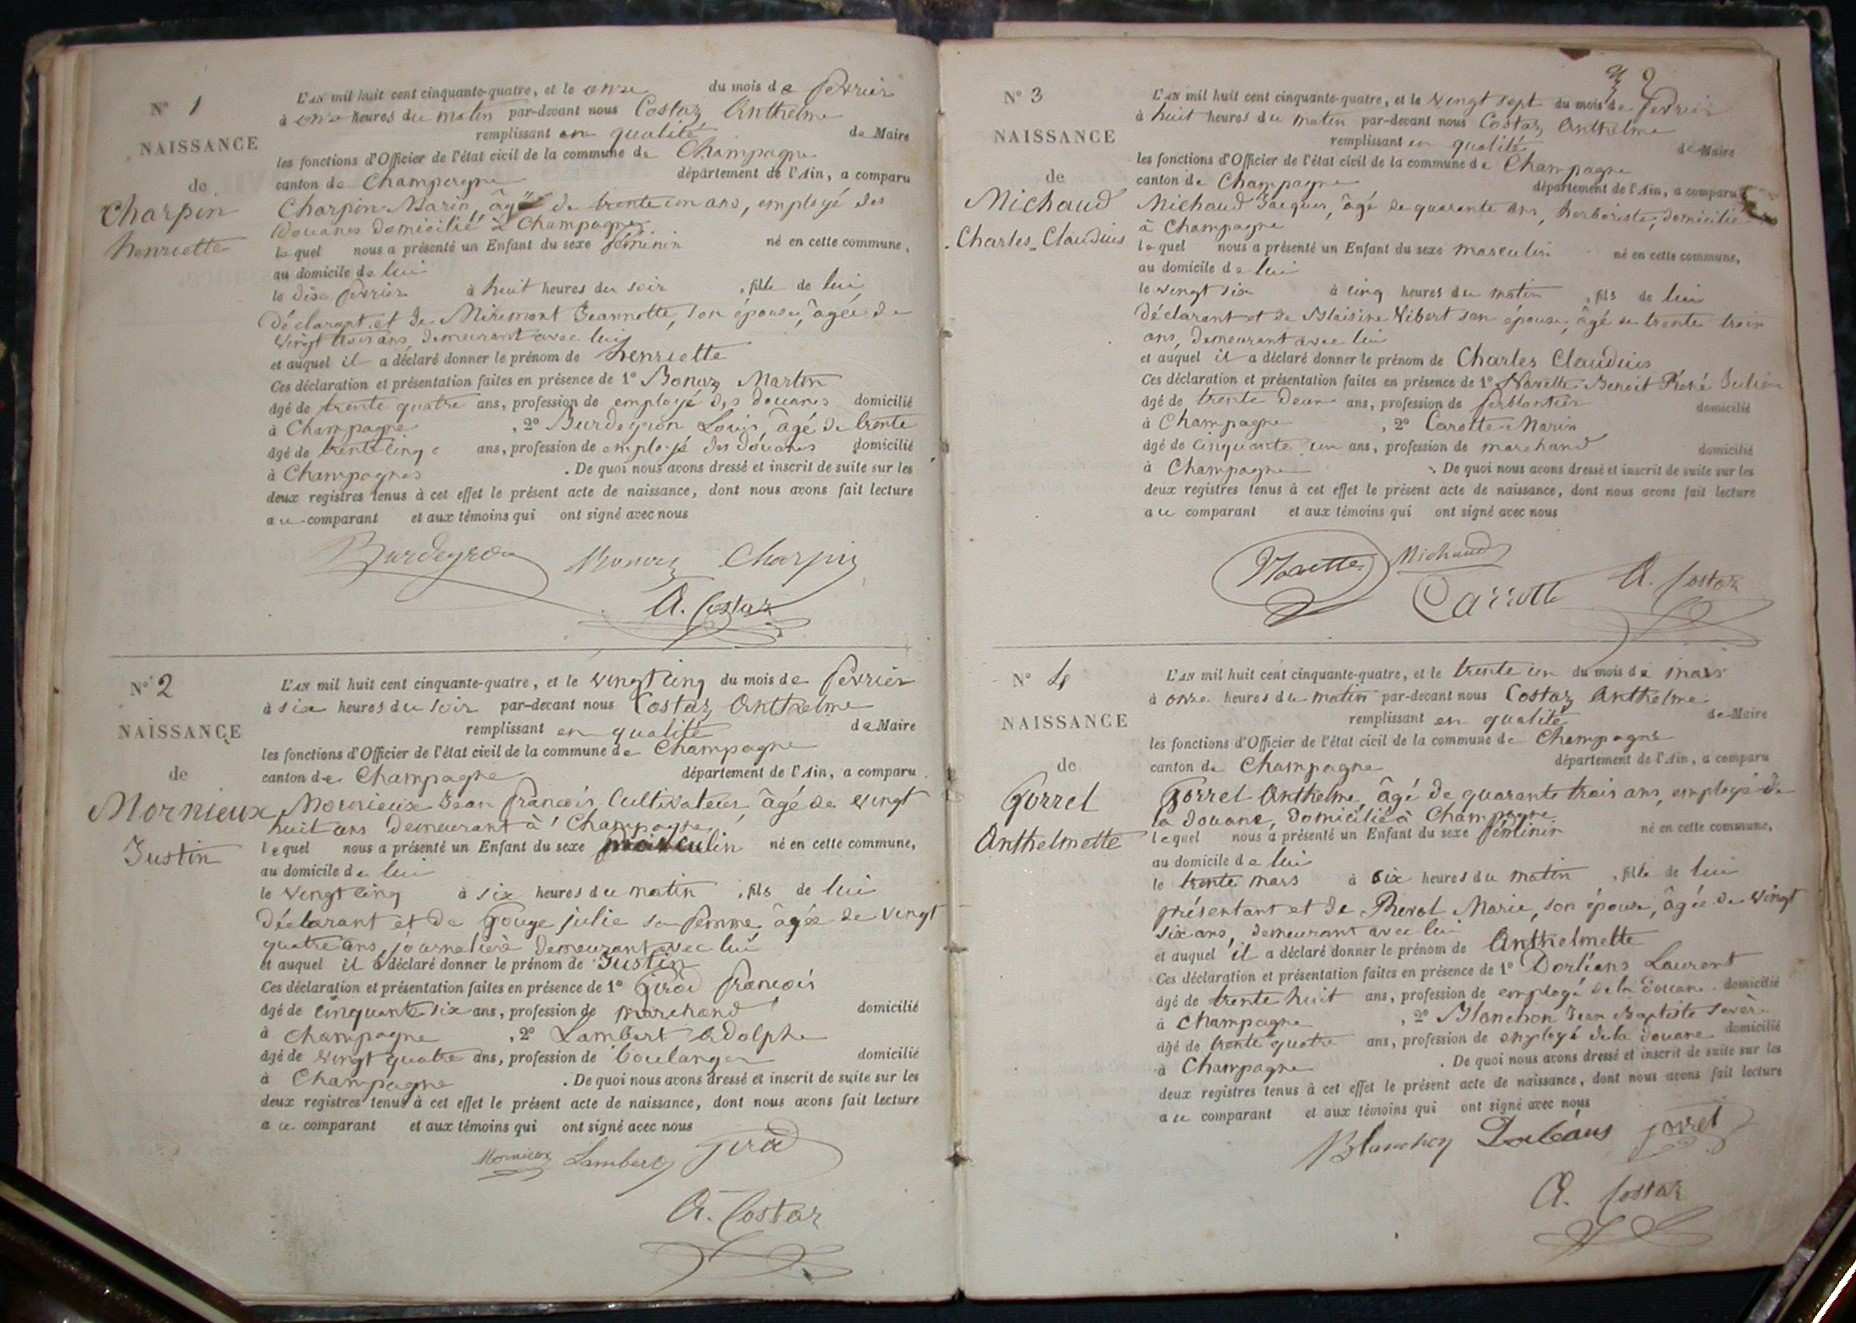 N° 1
NAISSANCE
de
Charpin
henriette
L'AN mil huit cent cinquante-quatre, et le onze du mois de février
à onze heures du matin par-devant nous Costaz Anthelme
remplissant en qualité de Maire
les fonctions d'Officier de l'état civil de la commune de Champagne
canton de Champagne département de l'Ain, a comparu
Charpin Marin, âgé de trente un ans, employé des
Douanes domicilié à Champagne
lequel nous a présenté un Enfant du sexe féminin né en cette commune,
au domicile de lui
le dix février à huit heures du soir , fille de lui
Déclarant et de Miremont Jeannette, son épouse, âgée de
vingt trois ans, demeurant avec lui
et auquel il a déclaré donner le prénom de henriette
Ces déclaration et présentation faites en présence de 1° Bonaz Martin
âgé de trente quatre ans, profession de employé des douanes domicilié
à Champagne , 2° Burdeyron Louis, âgé de trente
âgé de trente cinq ans, profession de employé des douanes domicilié
à Champagnes . De quoi nous avons dressé et inscrit de suite sur les
deux registres tenus à cet effet le présent acte de naissance, dont nous avons fait lecture
au comparant et aux témoins qui ont signé avec nous
Burdeyron Bonaz Charpin
A. Costaz
N° 2
NAISSANCE
de
Mornieux
Justin
L'AN mil huit cent cinquante-quatre, et le vingt cinq du mois de février
à six heures du soir par-devant nous Costaz Anthelme
remplissant en qualité de Maire
les fonctions d'Officier de l'état civil de la commune de Champagne
canton de Champagne département de l'Ain, a comparu
Mornieux Jean françois, Cultivateur, âgé de vingt
huit ans demeurant à Champagne
lequel nous a présenté un Enfant du sexe masculin né en cette commune,
au domicile de lui
le vingt cinq à six heures du matin , fils de lui
Déclarant et de Gouge julie sa femme, âgée de vingt
quatre ans, journalière demeurant avec lui
et auquel il a déclaré donner le prénom de Justin
Ces déclaration et présentation faites en présence de 1° Girod françois
âgé de cinquante six ans, profession de marchand domicilié
à Champagne , 2° Lambert Adolphe
âgé de vingt quatre ans, profession de boulanger domicilié
à Champagne . De quoi nous avons dressé et inscrit de suite sur les
deux registres tenus à cet effet le présent acte de naissance, dont nous avons fait lecture
au comparant et aux témoins qui ont signé avec nous
Mornieux Lambert Girod
A. Costaz
2
N° 3
NAISSANCE
de
Michaud
Charles-Claudius
L'AN mil huit cent cinquante-quatre, et le vingt sept du mois de février
à huit heures du matin par-devant nous Costaz Anthelme
remplissant en qualité de Maire
les fonctions d'Officier de l'état civil de la commune de Champagne
canton de Champagne département de l'Ain, a comparu
Michaud Jacques, âgé de quarante ans, herboriste, domicilié
à Champagne
lequel nous a présenté un Enfant du sexe masculin né en cette commune,
au domicile de lui
le vingt six à cinq heures du matin , fils de lui
déclarant et de Blaisine Vibert son épouse, âgé de trente trois
ans, demeurant avec lui
et auquel il a déclaré donner le prénom de Charles Claudius
Ces déclaration et présentation faites en présence de 1° Benoit
âgé de trente deux ans, profession de ferblantier domicilié
à Champagne , 2° Carotte Marin
âgé de cinquante un ans, profession de marchand domicilié
à Champagne . De quoi nous avons dressé et inscrit de suite sur les
deux registres tenus à cet effet le présent acte de naissance, dont nous avons fait lecture
au comparant et aux témoins qui ont signé avec nous
Michaud
Carrotte A. Costaz
N° 4
NAISSANCE
de
Gorrel
Anthelmette
L'AN mil huit cent cinquante-quatre, et le trente un du mois de mars
à onze heures du matin par-devant nous Costaz Anthelme
remplissant en qualité de Maire
les fonctions d'Officier de l'état civil de la commune de Champagne
canton de Champagne département de l'Ain, a comparu
Gorrel Anthelme, âgé de quarante trois ans, employé de
la douane, domicilié à Champagne
lequel nous a présenté un Enfant du sexe féminin né en cette commune,
au domicile de lui
le trente mars à six heures du matin , fille de lui
présentant et de Revol Marie, son épouse, âgée de vingt
six ans, demeurant avec lui
et auquel il a déclaré donner le prénom de Anthelmette
Ces déclaration et présentation faites en présence de 1° Dorléans Laurent
âgé de trente huit ans, profession de employé de la Douane domicilié
à Champagne , 2° Blanchon Jean Baptiste Sévère
âgé de trente quatre ans, profession de employé de la douane domicilié
à Champagne . De quoi nous avons dressé et inscrit de suite sur les
deux registres tenus à cet effet le présent acte de naissance, dont nous avons fait lecture
au comparant et aux témoins qui ont signé avec nous
Blanchon Dorléans Gorrel
A. Costaz